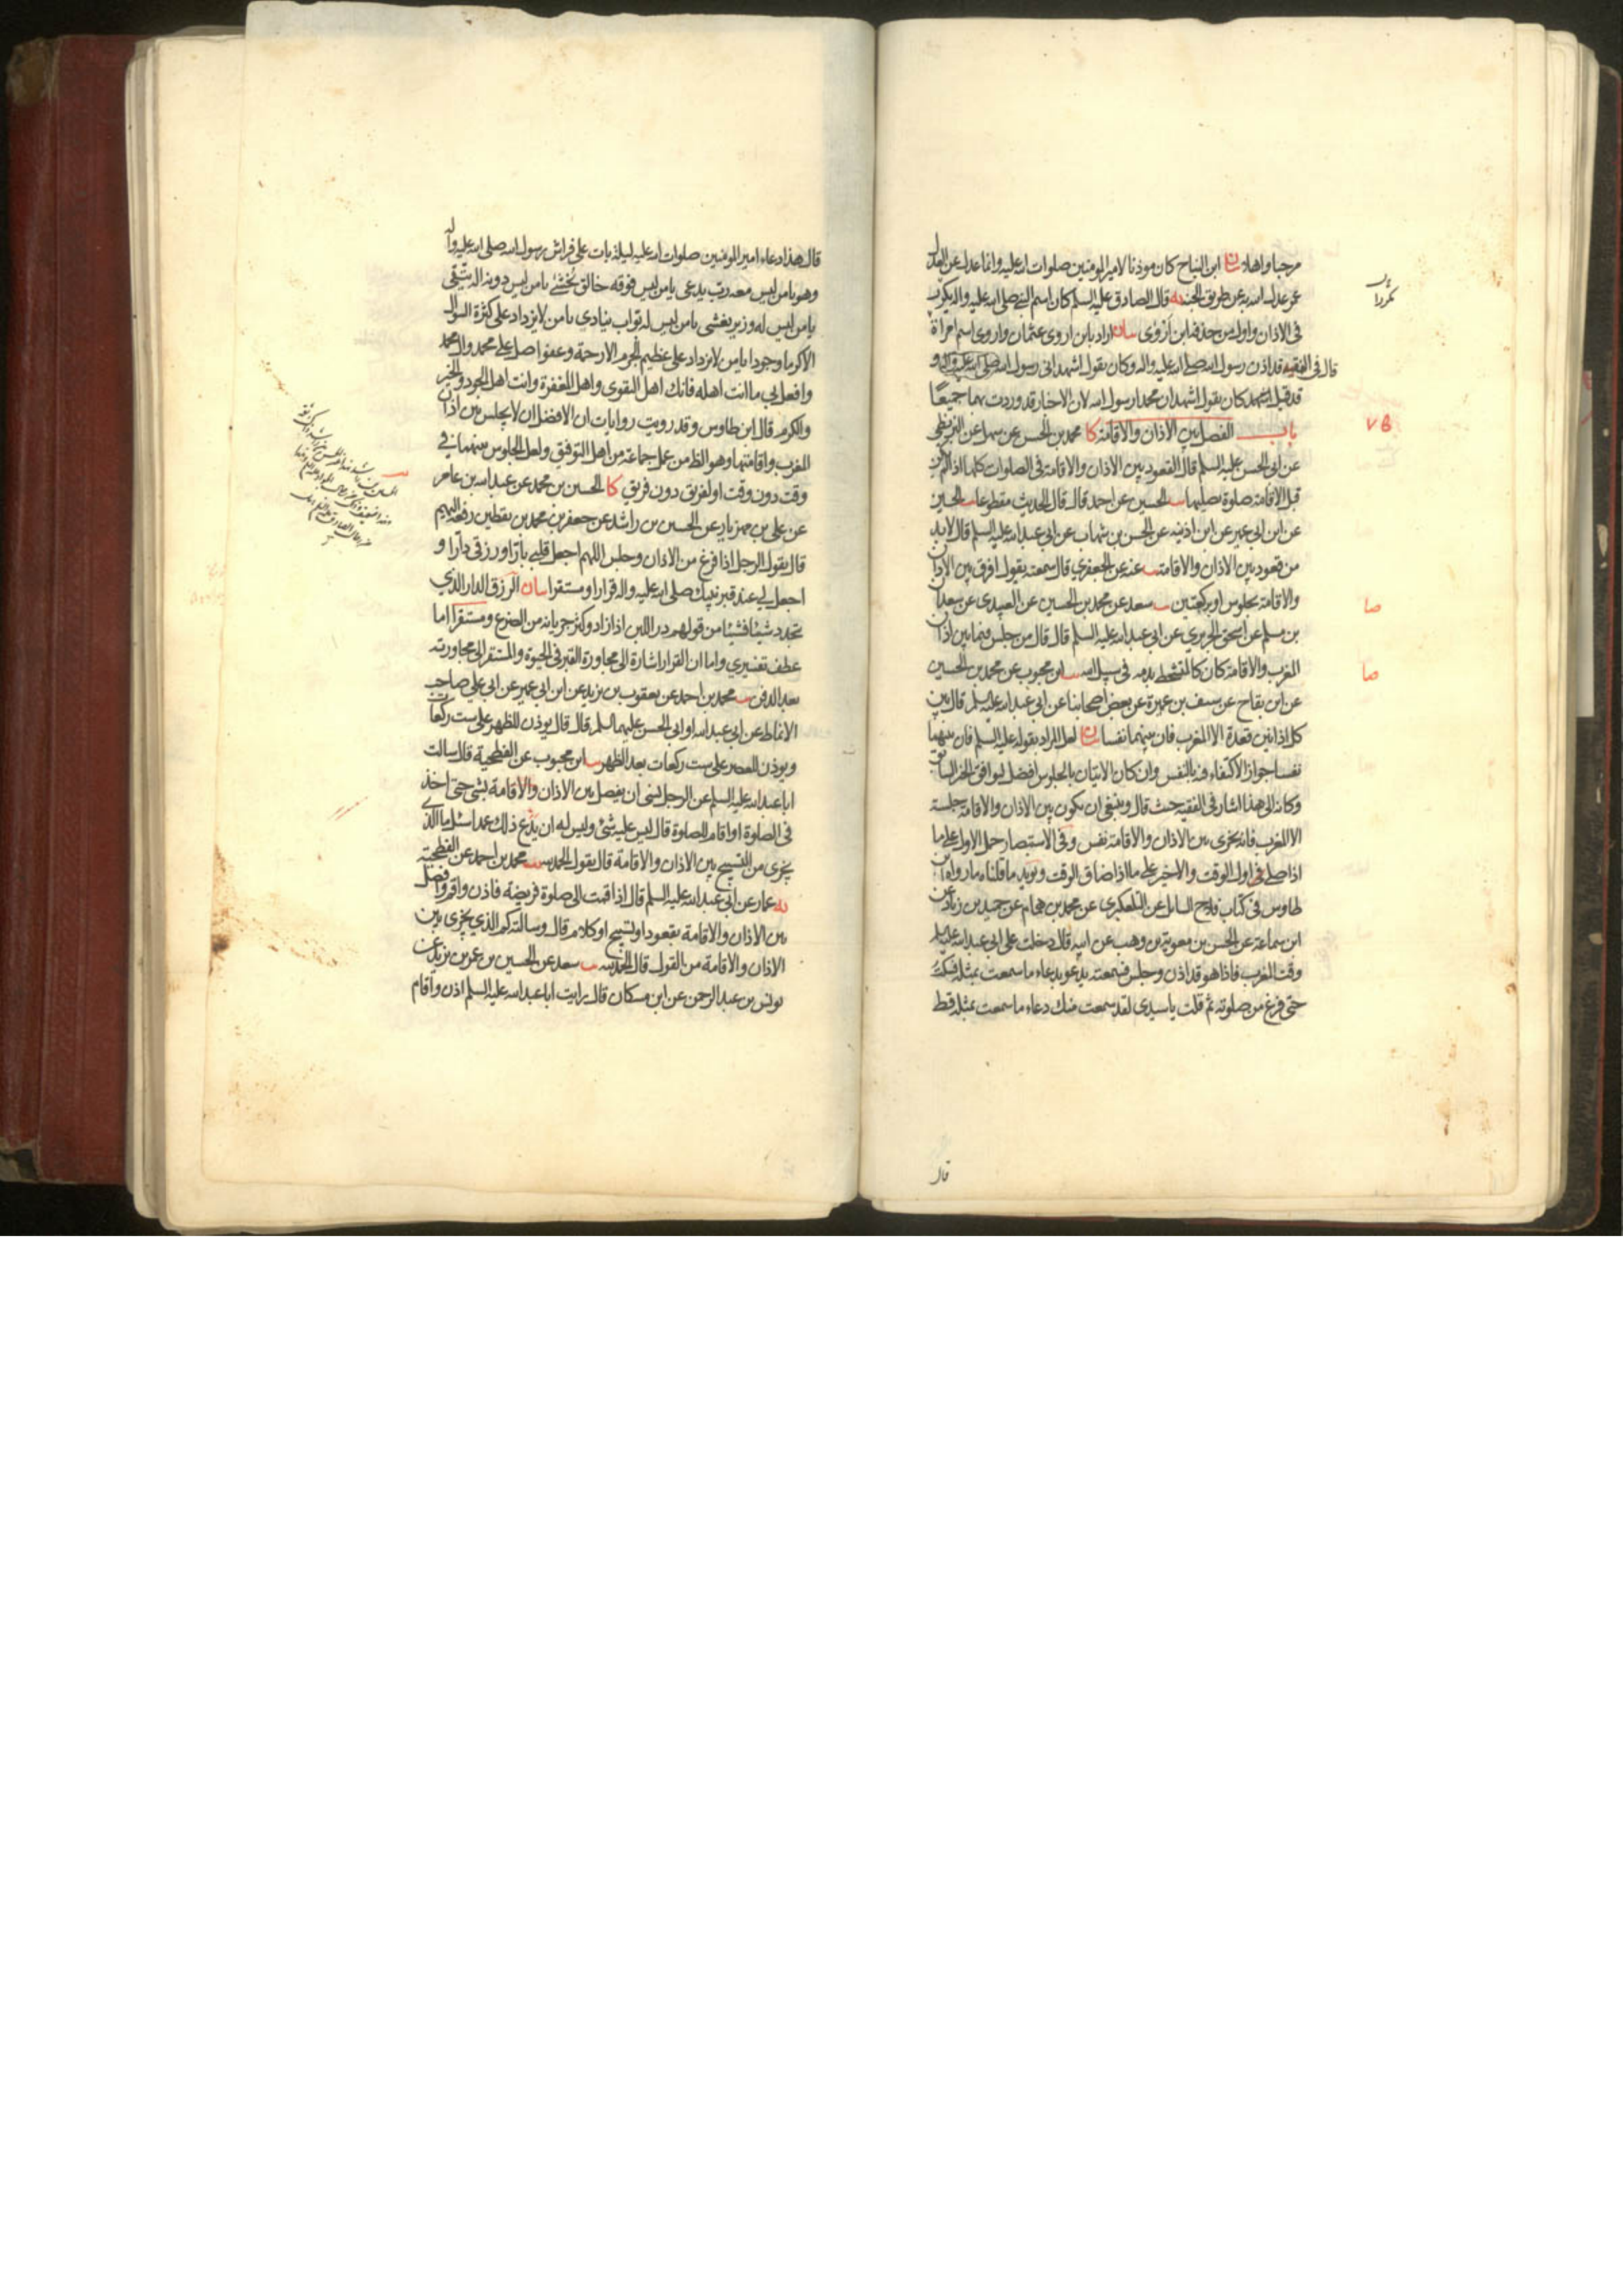 مرحبا واهلا بيان ابن النباح كان موذنا لامير المومنين صلوات الله عليه وانما عدل عن العدل
عمر عدل الله به عن طريق الجنة يه قال الصادق عليه السلم كان اسم النبي صلى الله عليه واله يكرر
في الاذان واول من حذفه ابن اروى بيان اراد بابن اروى عثمان واروى اسم امراة
قال في الفقيه قد اذن رسول الله صلى الله عليه واله وكان يقول اشهد اني رسول الله صلى الله عليه واله و
قد قيل انه كان يقول اشهد ان محمدا رسول الله لان الاخبار قد وردت بهما جميعا
باب الفصل بين الاذان والاقامة كا محمد بن الحسن عن سهل عن البزنطي
عن ابي الحسن عليه السلم قال القعود بين الاذان والاقامة في الصلوات كلها اذا لم يكن
قبل الاقامة صلوة يصليها يب الحسين عن احمد قال قال الحديث مقطوعا يب الحسين
عن ابن ابي عمير عن ابن اذينه عن الحسن بن شهاب عن ابي عبد الله عليه السلم قال لا بد
من قعود بين الاذان والاقامة يب عنه عن الجعفري قال سمعته يقول افرق بين الاذان
والاقامة بجلوس او بركعتين يب سعد عن محمد بن الحسين عن العبيدي عن سعدان
بن مسلم عن اسحق الجريري عن ابي عبد الله عليه السلم قال قال من جلس فيما بين اذان
المغرب والاقامة كان كالمتشحط بدمه في سبيل الله يب ابن محبوب عن محمد بن الحسين
عن ابن بقاح عن سيف بن عميرة عن بعض اصحابنا عن ابي عبد الله عليه السلم قال بين
كل اذانين قعدة الا المغرب فان بينهما نفسا بيان لعل المراد بقوله عليه السلم فان بينهما
نفسا جواز الاكتفاء فيه بالنفس وان كان الاتيان بالجلوس افضل ليوافق الخبر السابق
وكانه الى هذا اشار في الفقيه حيث قال وينبغي ان يكون بين الاذان والاقامة جلسة
الا المغرب فانه يجزى بين الاذان والاقامة نفس وفي الاستبصار حمل الاول على ما
اذا صلى في اول الوقت والاخير على ما اذا ضاق الوقت ويويد ما قلناه ما رواه ابن
طاوس في كتاب فلاح السايل عن التلعكبري عن محمد بن همام عن حميد بن زياد عن
ابن سماعة عن الحسن بن معوية بن وهب عن ابيه قال دخلت على ابي عبد الله عليه السلم
وقت المغرب فاذا هو قد اذن وجلس فسمعته يدعو بدعاء ما سمعت بمثله فسكت
حتى فرغ من صلوته ثم قلت يا سيدى لقد سمعت منك دعاء ما سمعت بمثله قط
قال
صا
صا
قال هذا دعاء امير المومنين صلوات الله عليه ليلة بات على فراش رسول الله صلى الله عليه واله
وهو يا من ليس معه رب يدعى يا من ليس فوقه خالق يخشى يا من ليس دونه اله يتقى
يا من ليس له وزير يغشى يا من ليس له بواب ينادي يا من لا يزداد على كثرة السوال
الا كرما وجودا يا من لا يزداد على عظيم الجرم الا رحمة وعفوا صل على محمد وال محمد
وافعل بي ما انت اهله فانك اهل التقوى واهل المغفرة وانت اهل الجود والخير
والكرم قال ابن طاوس وقد رويت روايات ان الافضل ان لا يجلس بين اذان
المغرب واقامتها وهو الظ من عمل جماعة من اهل التوفيق ولعل الجلوس بينهما في
وقت دون وقت او لفريق دون فريق كا الحسين بن محمد عن عبد الله بن عامر
عن علي بن مهزيار عن الحسين بن راشد عن جعفر بن محمد بن يقطين رفعه اليهم
قال يقول الرجل اذا فرغ من الاذان وجلس اللهم اجعل قلبي بارا ورزقي دارا و
اجعل لي عند قبر نبيك صلى الله عليه واله قرارا ومستقرا بيان الرزق الدار الذي
يتجدد شيئا فشيئا من قولهم در اللبن اذا زاد وكثر جريانه من الضرع ومستقرا اما
عطف تفسيري واما ان القرار اشارة الى مجاورة القبر في الحيوة والمستقر الى مجاورته
بعد الدفن يب محمد بن احمد عن يعقوب بن يزيد عن ابن ابي عمير عن ابي علي صاحب
الانماط عن ابي عبد الله او ابي الحسن عليهما السلم قال قال يوذن للظهر على ست ركعات
ويوذن للعصر على ست ركعات بعد الظهر يب ابن محبوب عن الفطحية قال سالت
ابا عبد الله عليه السلم عن الرجل نسى ان يفصل بين الاذان والاقامة بشي حتى اخذ
في الصلوة او اقام للصلوة قال ليس عليه شئ وليس له ان يدع ذلك عمدا سئل ما الذي
يجزى من التسبيح بين الاذان والاقامة قال يقول الحمد لله يب محمد بن احمد عن الفطحية
يه عمار عن ابي عبد الله عليه السلم قال اذا قمت الى صلوة فريضة فاذن واقم وافصل
بين الاذان والاقامة بقعود او تسبيح او كلام قال وسالته كم الذي يجزى بين
الاذان والاقامة من القول قال الحمد لله يب سعد عن الحسين بن عمر بن يزيد عن
يونس بن عبد الرحمن عن ابن مسكان قال رايت ابا عبد الله عليه السلم اذن واقام